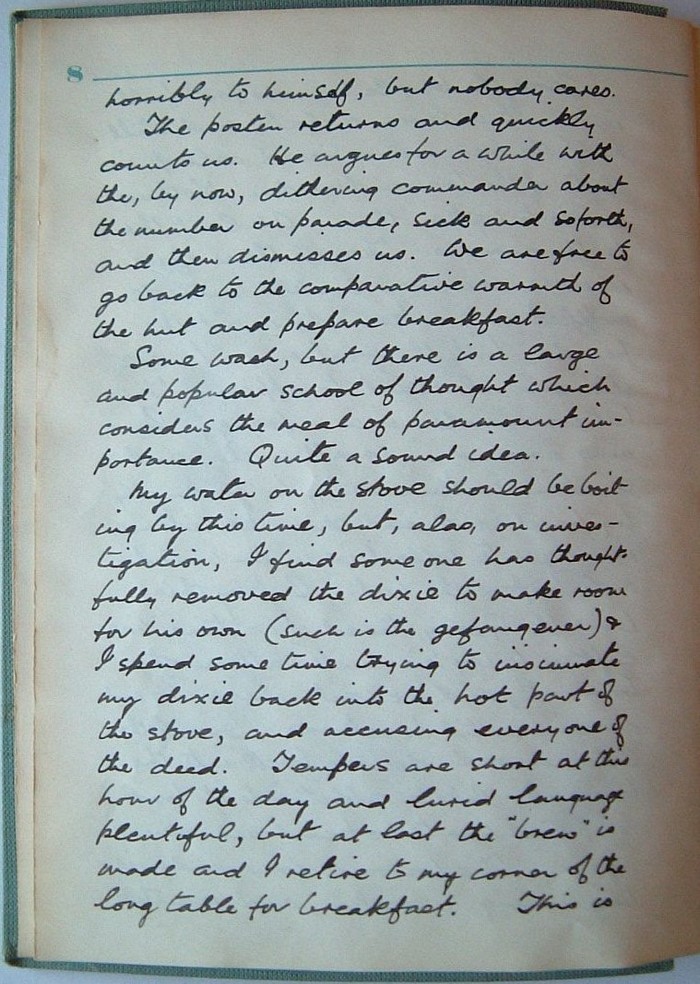 8
horribly to himself, but nobody cares.
The posten returns and quickly
counts us. He argues for a while with
the, by now, dithering commander about
the number on parade, sick and so forth,
and then dismisses us. We are free to
go back to the comparative warmth of
the hut and prepare breakfast.
Some wash, but there is a large
and popular school of thought which
considers the meal of paramount im-
portance. Quite a sound idea.
My water on the stove should be boil
ing by this time, but, alas, on inves-
tigation, I find some one has thought-
fully removed the dixie to make room
for his own (such is the gefangener) &
I spend some time trying to insinuate
my dixie back into the hot part of
the stove, and accusing everyone of
the deed. Tempers are short at this
hour of the day and lurid language
plentiful, but at last the "brew" is
made and I retire to my corner of the
long table for breakfast. This is